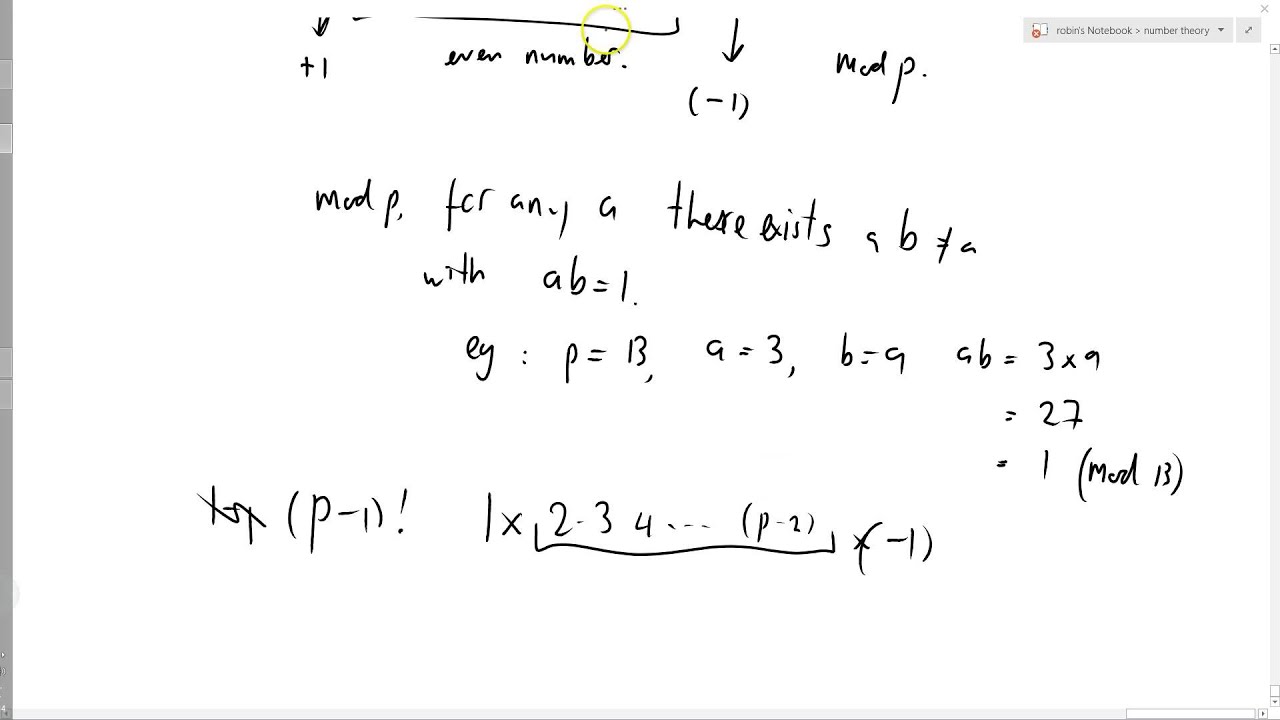 robin's Notebook > number theory
+1 even number. (-1) mod p.
mod p, for any a there exists a b ≠ a
with ab = 1.
eg : p = 13, a = 3, b = 9 ab = 3 x 9
= 27
= 1 (mod 13)
(p-1)! 1 x 2·3 4 ---- (p-2) x (-1)